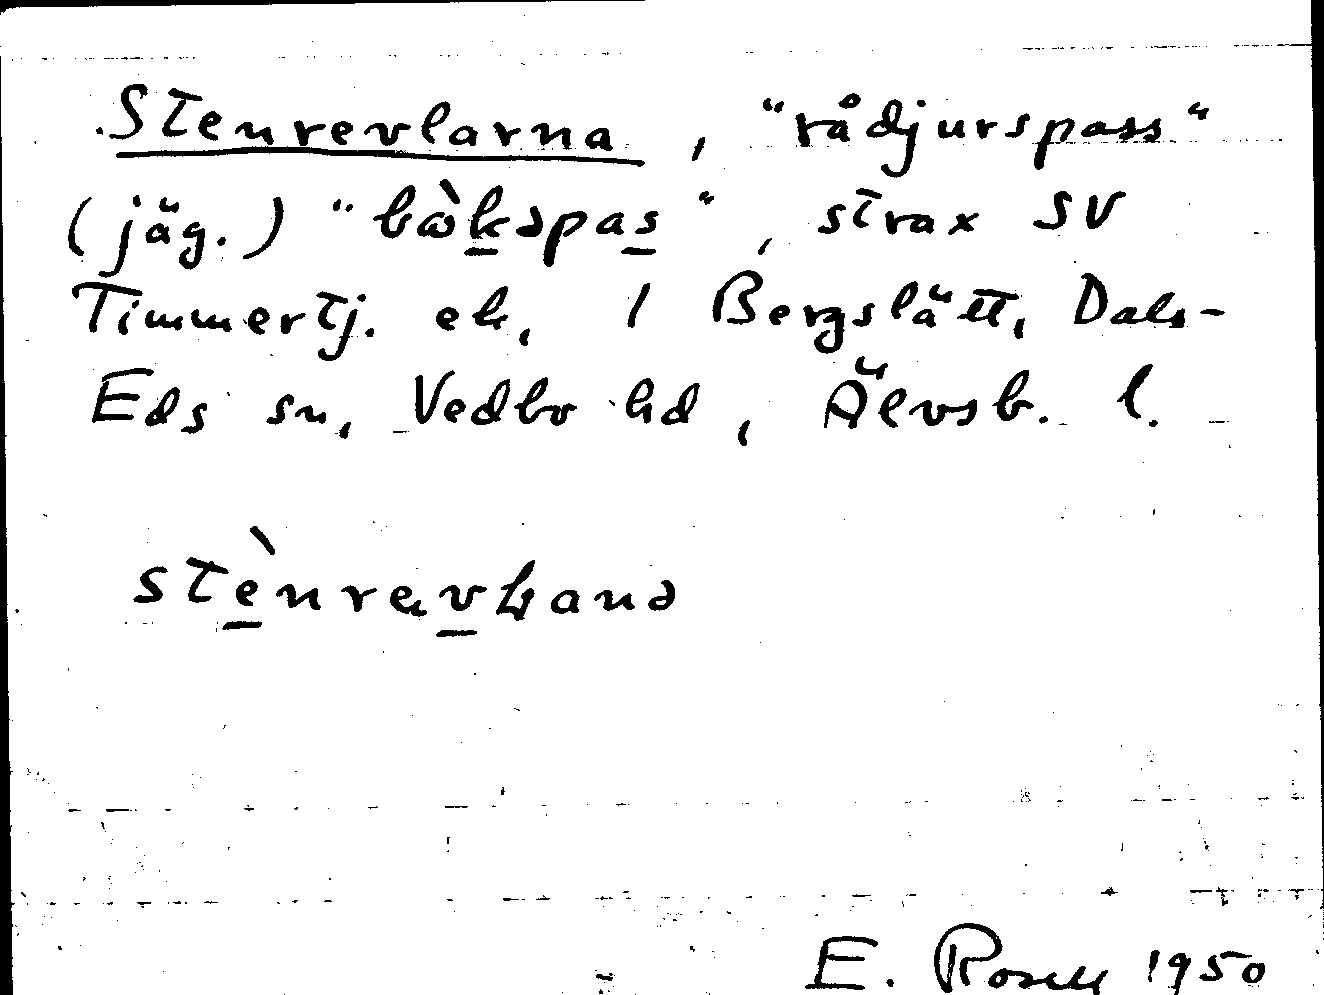 Stenrevlarna, "rådjurspass"
(jäg.) "bòkspas", strax SV
Timmertj. ek, 1 Bergslätt, Dals-
Eds sn, Vedbo hd, Älvsb. l.
E. Rosell 1950